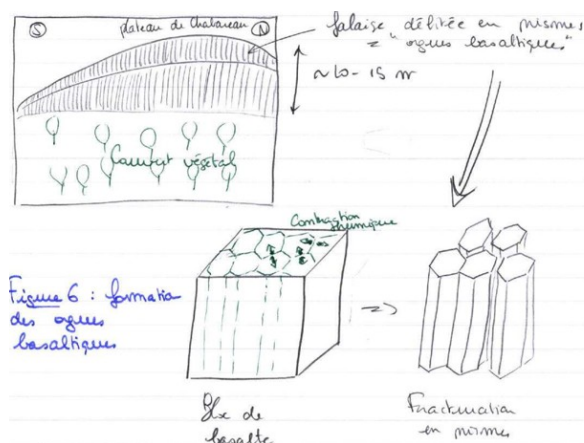 S
plateau de Chabaneau
N
falaise délitée en prismes
= "orgues basaltiques"
~10-15 m
Couvert végétal
Contraction
thermique
Figure 6 : formation
des orgues
basaltiques
=>
Bloc de
basalte
Fracturation
en prismes